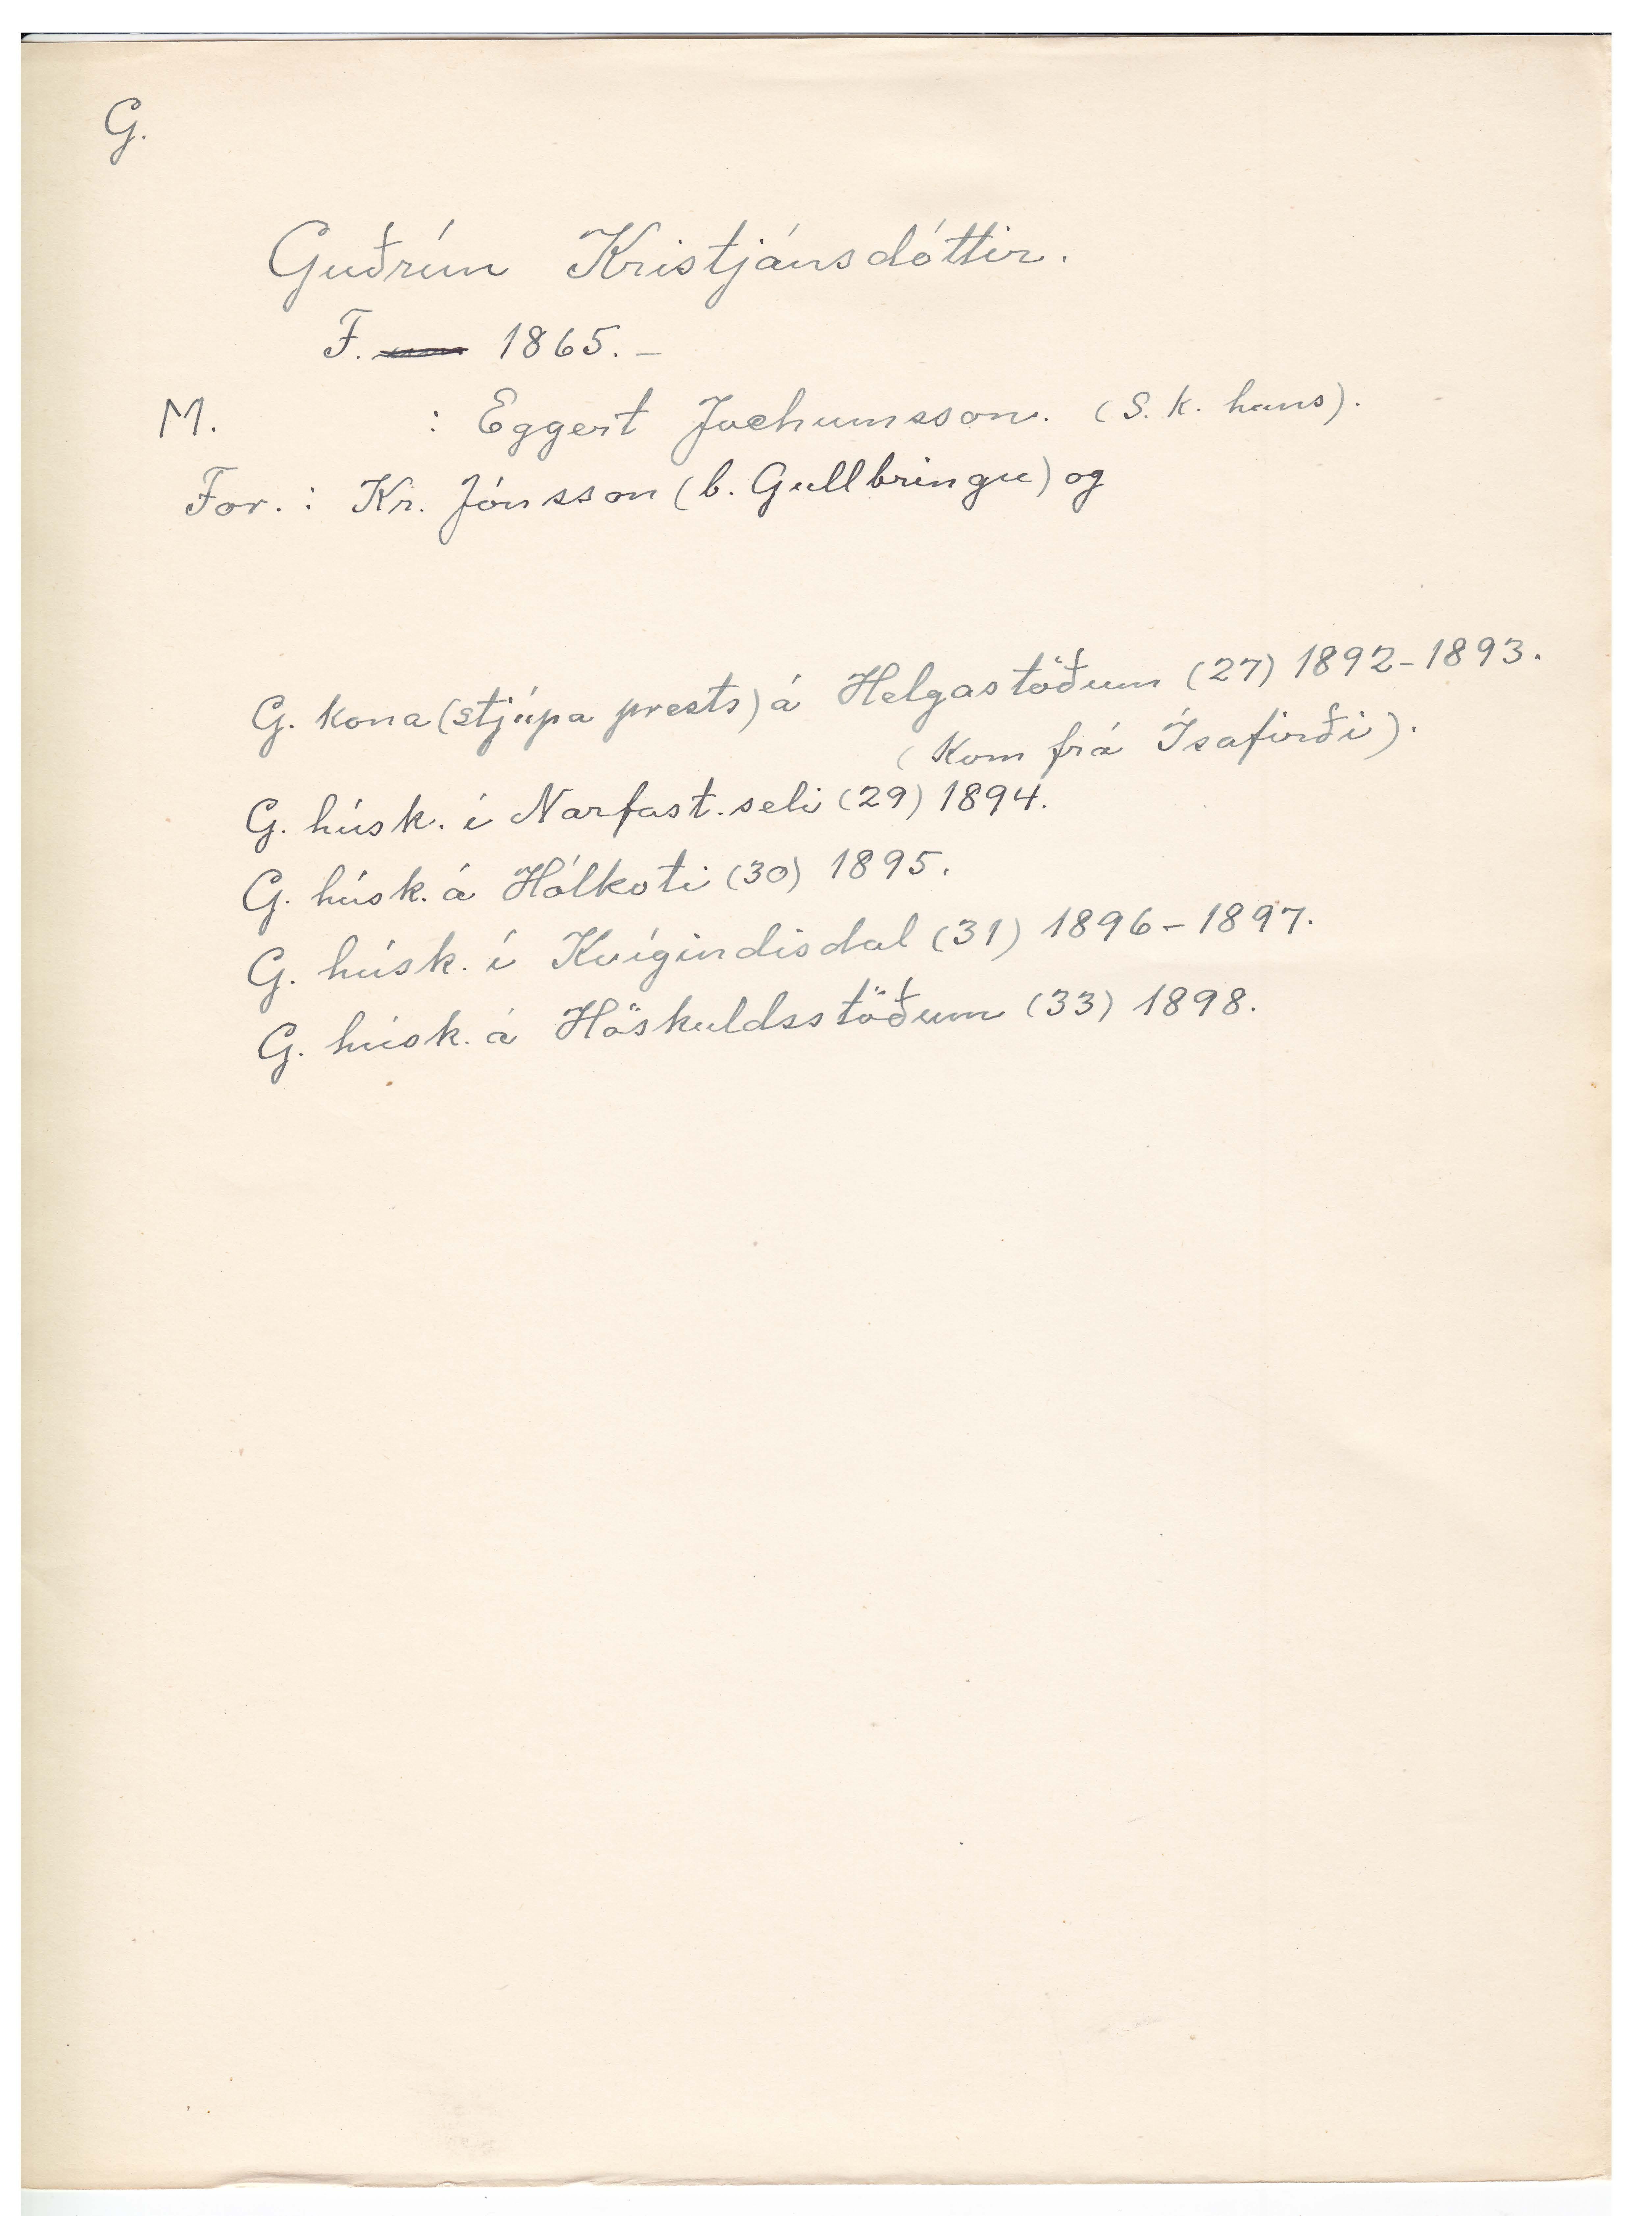 G.
Guðrún Kristjánsdóttir.
F. 1865. –
M. : Eggert Jochumsson. (S. k. hans).
For. : Kr. Jónsson (b. Gullbringu) og
G. kona (stjúpa prests) á Helgastöðum (27) 1892–1893.
(Kom frá Ísafirði).
G. húsk. í Narfast.seli (29) 1894.
G. húsk. á Hólkoti (30) 1895.
G. húsk. í Kvígindisdal (31) 1896–1897.
G. húsk. á Höskuldsstöðum (33) 1898.